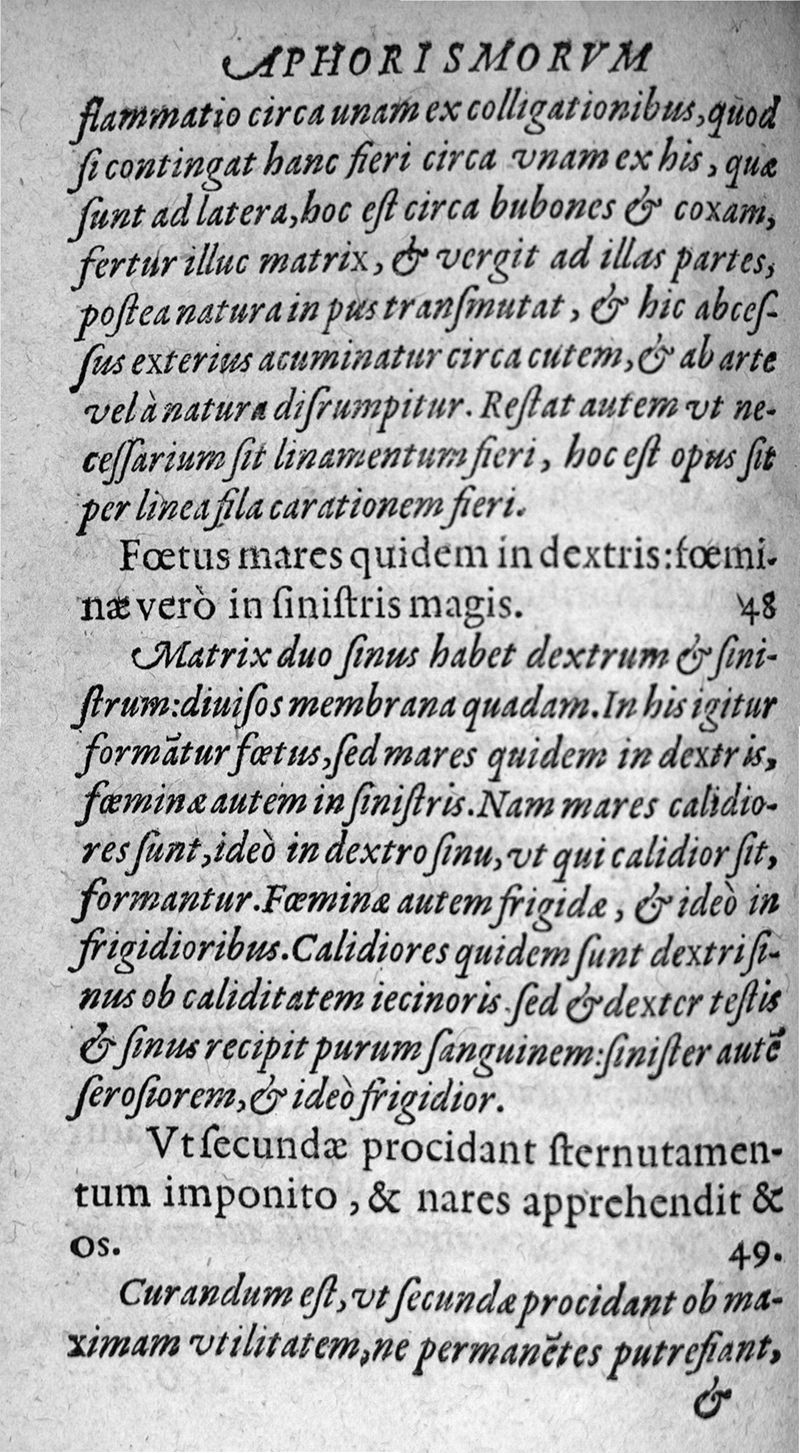 APHORISMORVM
flammatio circa unam ex colligationibus, quod
ſi contingat hanc fieri circa vnam ex his, quæ
ſunt ad latera, hoc eſt circa bubones & coxam,
fertur illuc matrix, & vergit ad illas partes,
poſtea natura in pus tranſmutat, & hic abceſ-
ſus exterius acuminatur circa cutem, & ab arte
vel à natura diſrumpitur. Reſtat autem vt ne-
ceſſarium ſit linamentum fieri, hoc eſt opus ſit
per linea fila carationem fieri.
Fœtus mares quidem in dextris: fœmi-
næ verò in ſiniſtris magis. 48
Matrix duo ſinus habet dextrum & ſini-
ſtrum: diuiſos membrana quadam. In his igitur
formãtur fœtus, ſed mares quidem in dextris,
fœminæ autem in ſiniſtris. Nam mares calidio-
res ſunt, ideò in dextro ſinu, vt qui calidior ſit,
formantur. Fœminæ autem frigidæ, & ideò in
frigidioribus. Calidiores quidem ſunt dextri ſi-
nus ob caliditatem iecinoris. ſed & dexter teſtis
& ſinus recipit purum ſanguinem: ſiniſter autẽ
ſeroſiorem, & ideò frigidior.
Vt ſecundæ procidant ſternutamen-
tum imponito, & nares apprehendit &
os. 49.
Curandum eſt, vt ſecundæ procidant ob ma-
ximam vtilitatem, ne permanẽtes putrefiant,
&